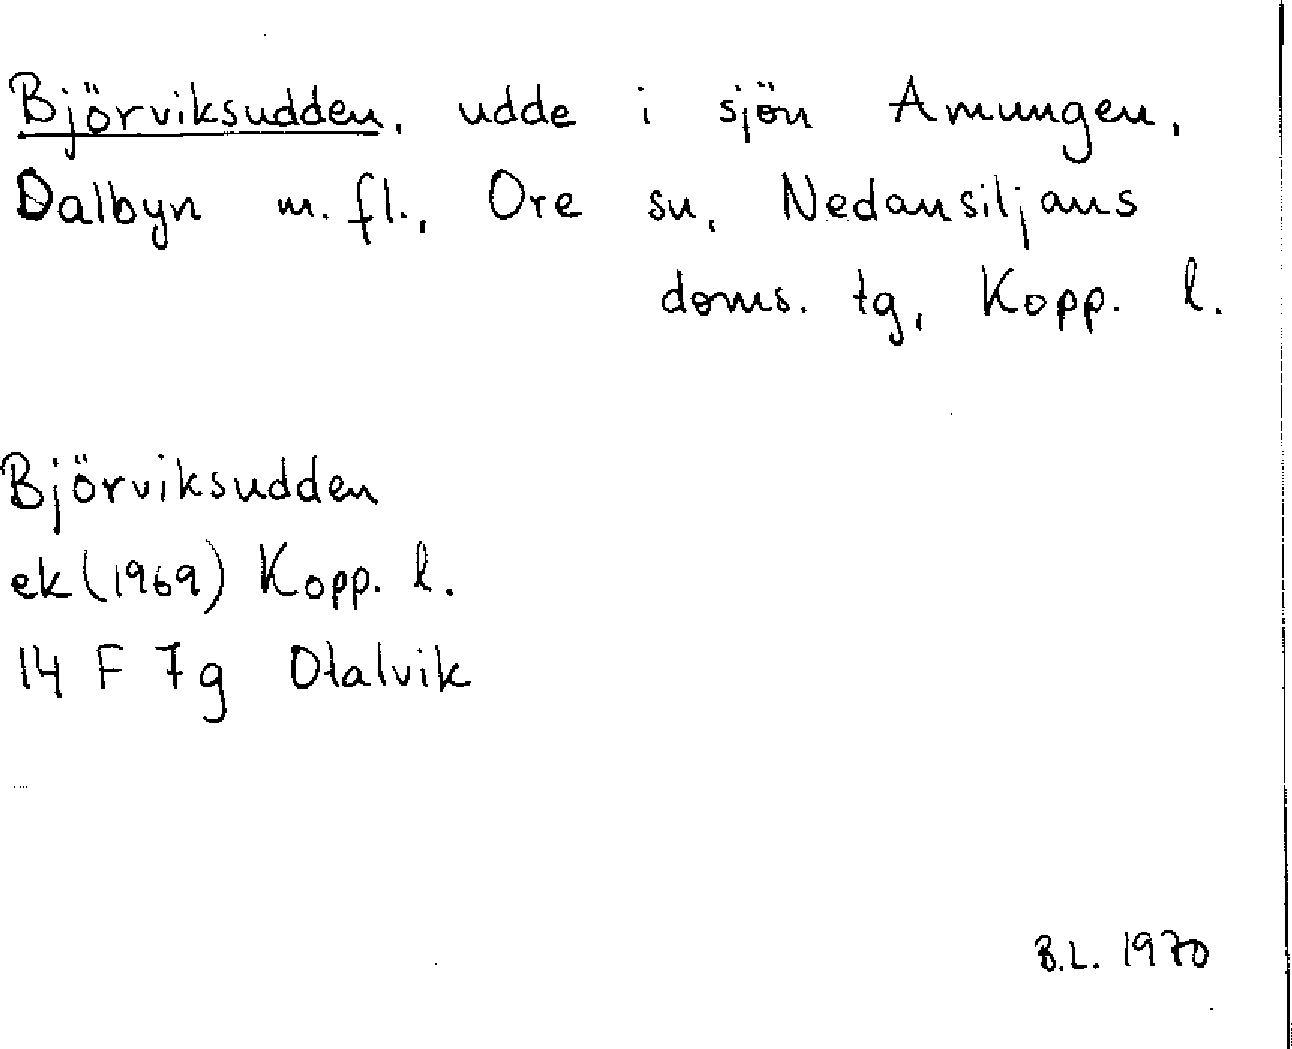 Björviksudden, udde i sjön Amungen,
Dalbyn m.fl., Ore sn, Nedansiljans
doms. tg, Kopp. l.
Björviksudden
ek (1969) Kopp. l.
14 F 7g Otalvik
B.L. 1970